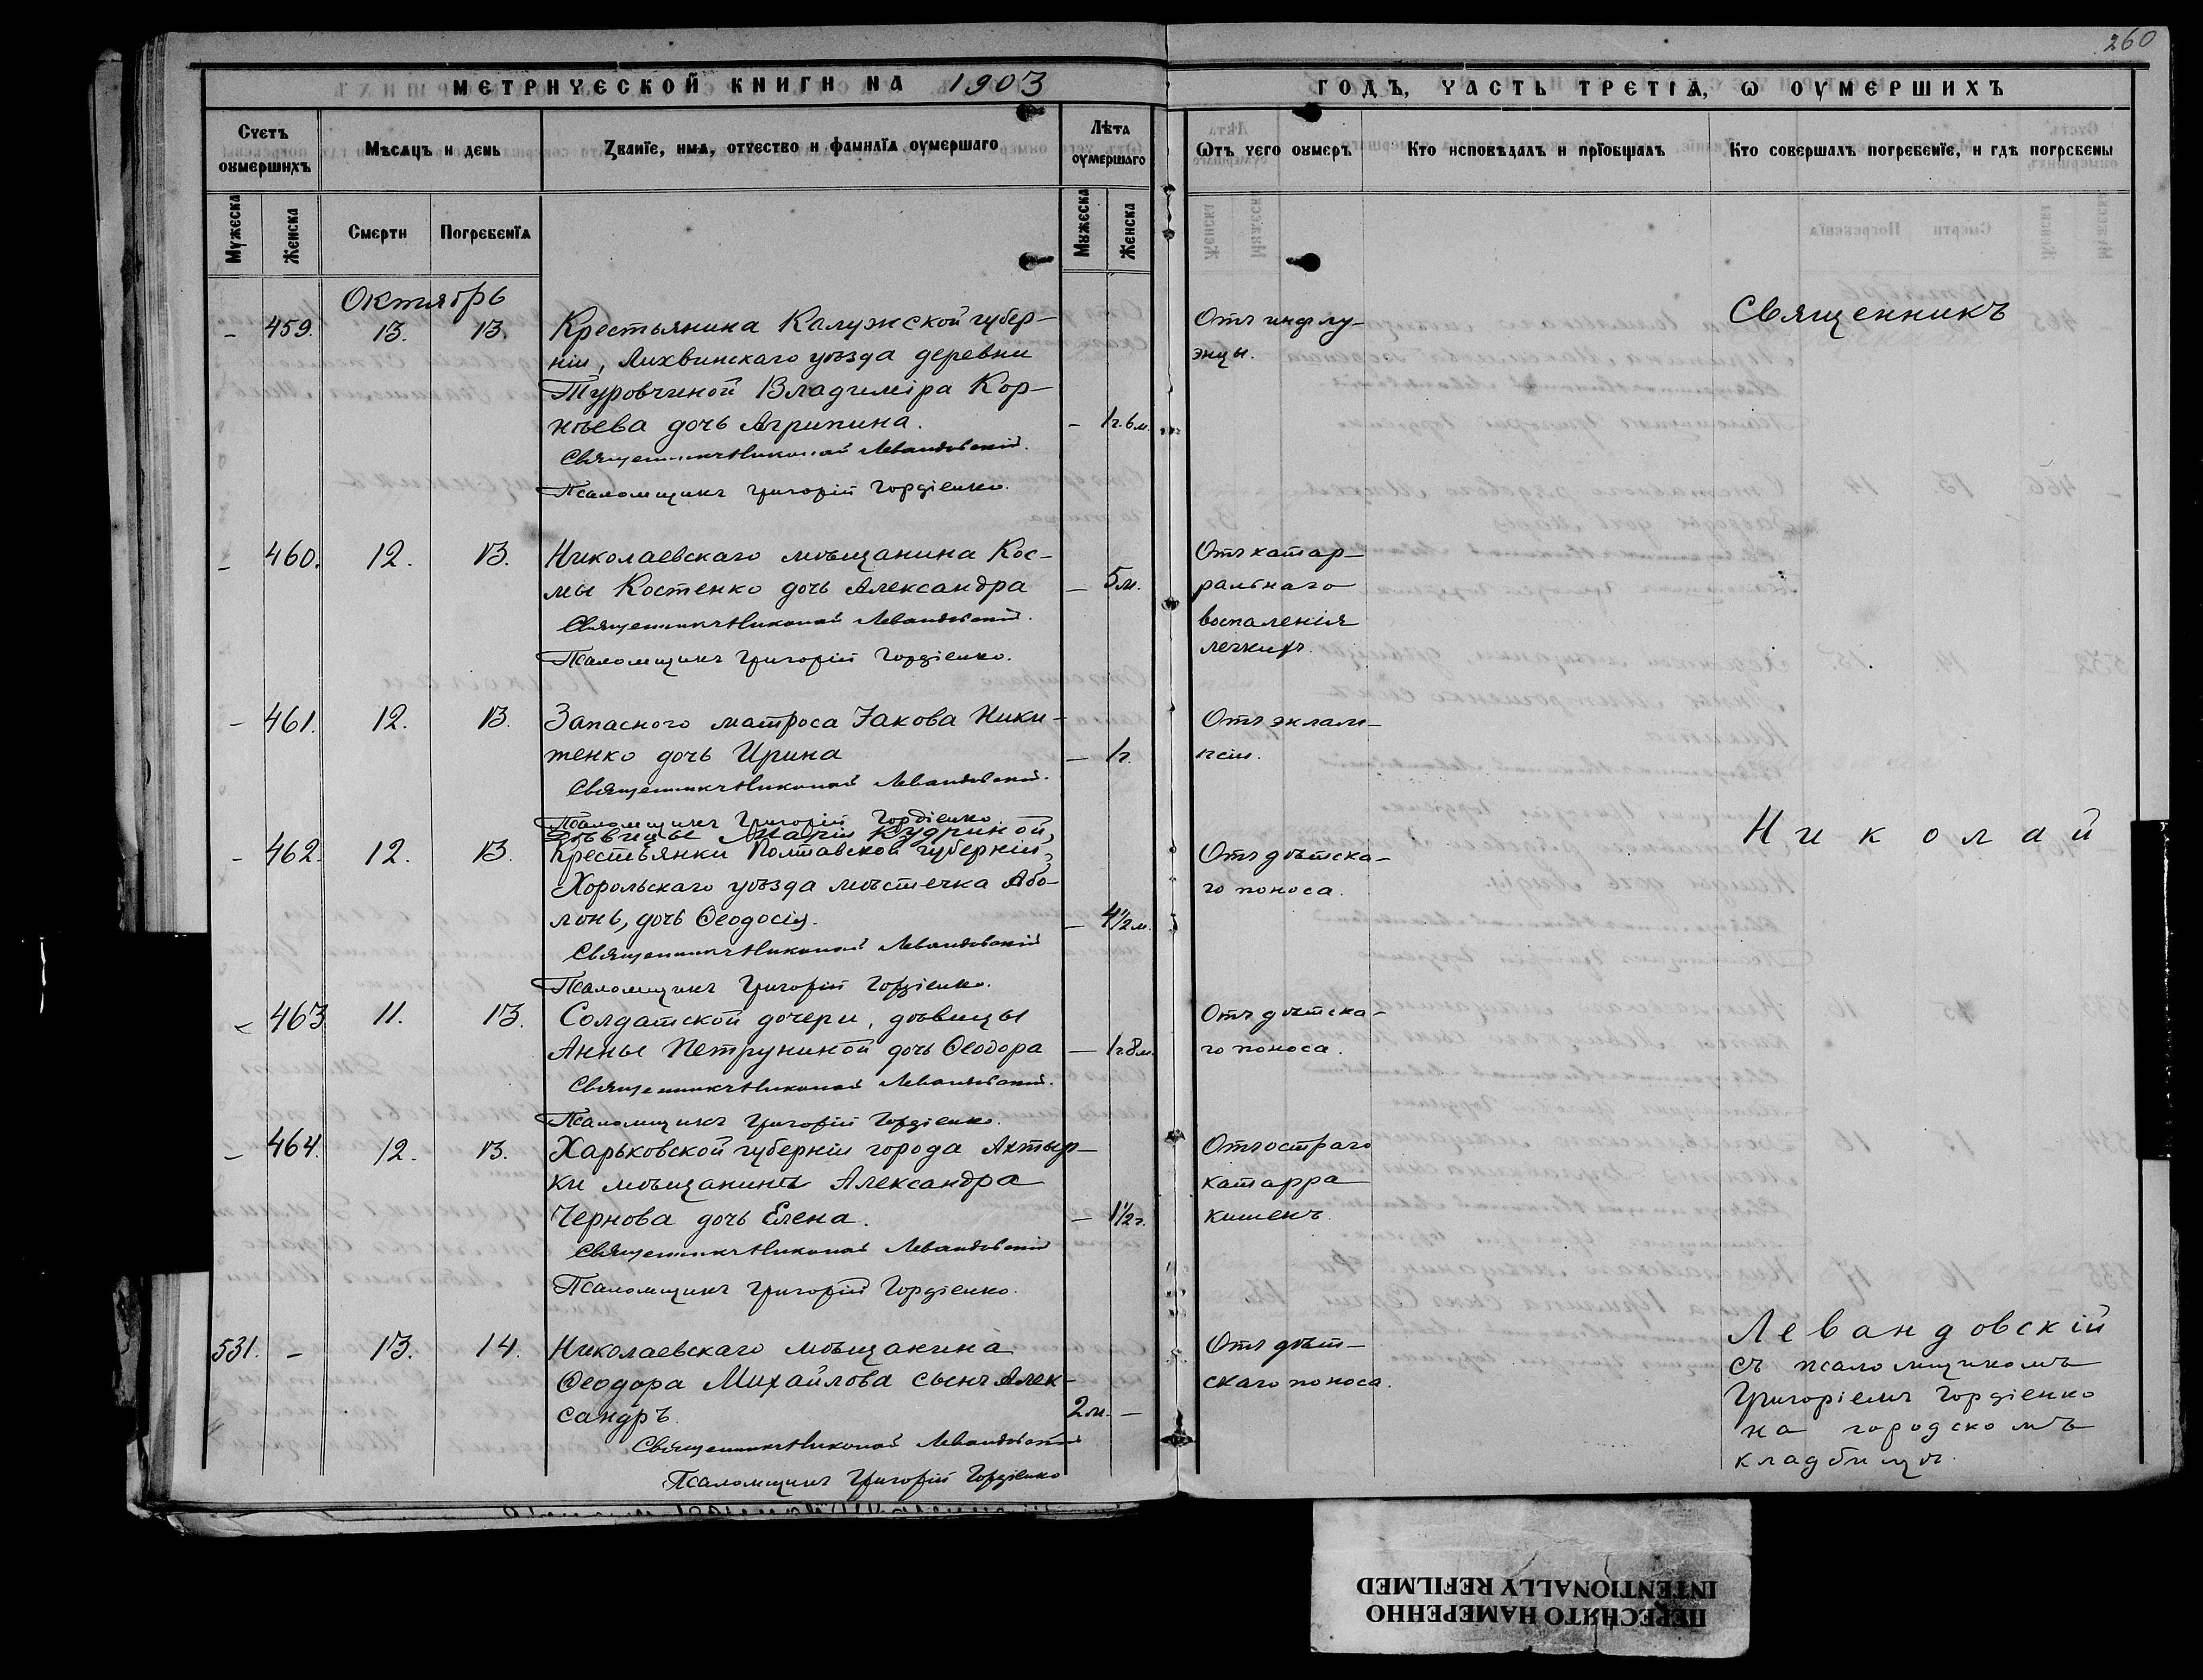 260
МЕТРИЧЕСКОЙ КНИГИ НА 1903
ГОДЪ, ЧАСТЬ ТРЕТІѦ, Ѡ ОУМЕРШИХЪ
Счетъ оумершихъ
Мѣсяцъ и день
Званїе, имѧ, отчество и фамилїѧ оумершаго
Лѣта оумершаго
Ѿтъ чего оумеръ
Кто исповѣдалъ и прїобщалъ
Кто совершалъ погребенїе, и гдѣ погребены
Мужеска
Женска
Смерти
Погребенїѧ
Мужеска
Женска
Октябрь
– 459. 13. 13. Крестьянина Калужской губер-
ніи, Лихвинскаго уѣзда деревни
Туровчиной Владиміра Кор-
нѣева дочь Агрипина. – 1г. 6 м.
Священникъ Николай Левандовскій.
Псаломщикъ Григорій Гордіенко.
Отъ инфлу-
энцы.
– 460. 12. 13. Николаевскаго мѣщанина Кос-
мы Костенко дочь Александра – 5 м.
Священникъ Николай Левандовскій.
Псаломщикъ Григорій Гордіенко.
Отъ катар-
ральнаго
воспаленія
легкихъ.
– 461. 12. 13. Запаснаго матроса Іакова Ники-
тенко дочь Ирина – 1г.
Священникъ Николай Левандовскій.
Псаломщикъ Григорій Гордіенко.
Отъ эклам-
псіи.
Дѣвицы Маріи Кудриной,
– 462. 12. 13. Крестьянки Полтавской губерніи,
Хорольскаго уѣзда мѣстечка Або-
лонь, дочь Ѳеодосія. – 4½ м.
Священникъ Николай Левандовскій
Псаломщикъ Григорій Гордіенко.
Отъ дѣтска-
го поноса.
– 463 11. 13. Солдатской дочери, дѣвицы
Анны Петруниной дочь Ѳеодора – 1г. 8 м.
Священникъ Николай Левандовскій.
Псаломщикъ Григорій Гордіенко.
Отъ дѣтска-
го поноса.
– 464. 12. 13. Харьковской губерніи города Ахтыр-
ки мѣщанина Александра
Чернова дочь Елена. – 1½ г.
Священникъ Николай Левандовскій
Псаломщикъ Григорій Гордіенко.
Отъ остраго
катарра
кишекъ.
531. – 13. 14. Николаевскаго мѣщанина
Ѳеодора Михайлова сынъ Алек-
сандръ. 2 м. –
Священникъ Николай Левандовскій
Псаломщикъ Григорій Гордіенко
Отъ дѣт-
скаго поноса.
Священникъ
Николай
Левандовскій
съ псаломщикомъ
Григоріемъ Гордіенко
на городскомъ
кладбищѣ.
ПЕРЕСНЯТО НАМЕРЕННО
INTENTIONALLY REFILMED